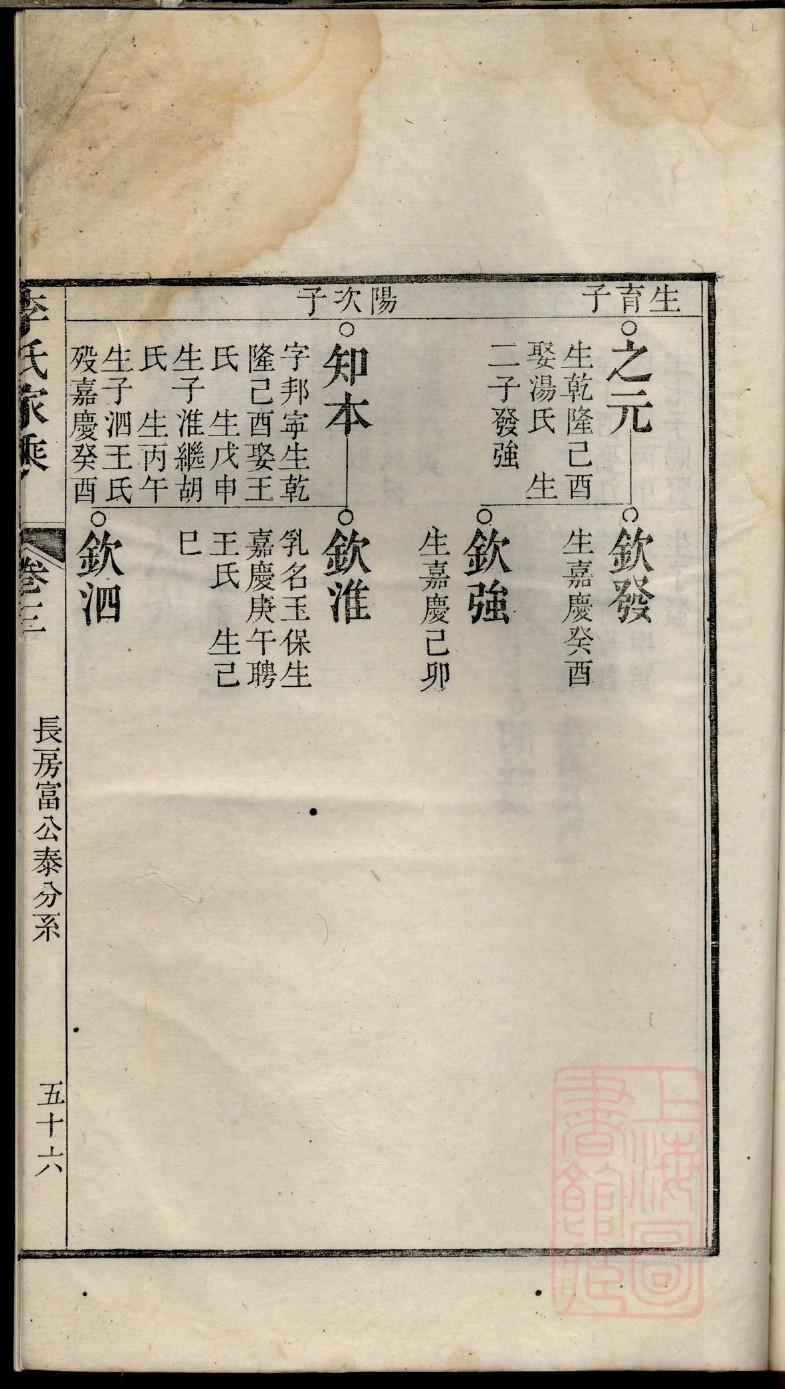 生育子
之元
生乾隆己酉
娶湯氏　生
二子發強
欽發
生嘉慶癸酉
欽強
生嘉慶己卯
陽次子
知本
字邦寧生乾
隆己酉娶王
氏　生戊申
生子淮繼胡
氏　生丙午
生子泗王氏
歿嘉慶癸酉
欽淮
乳名玉保生
嘉慶庚午聘
王氏　生己
巳
欽泗
李氏家乘
卷三
長房富公泰分系
五十六
上海圖
書館藏